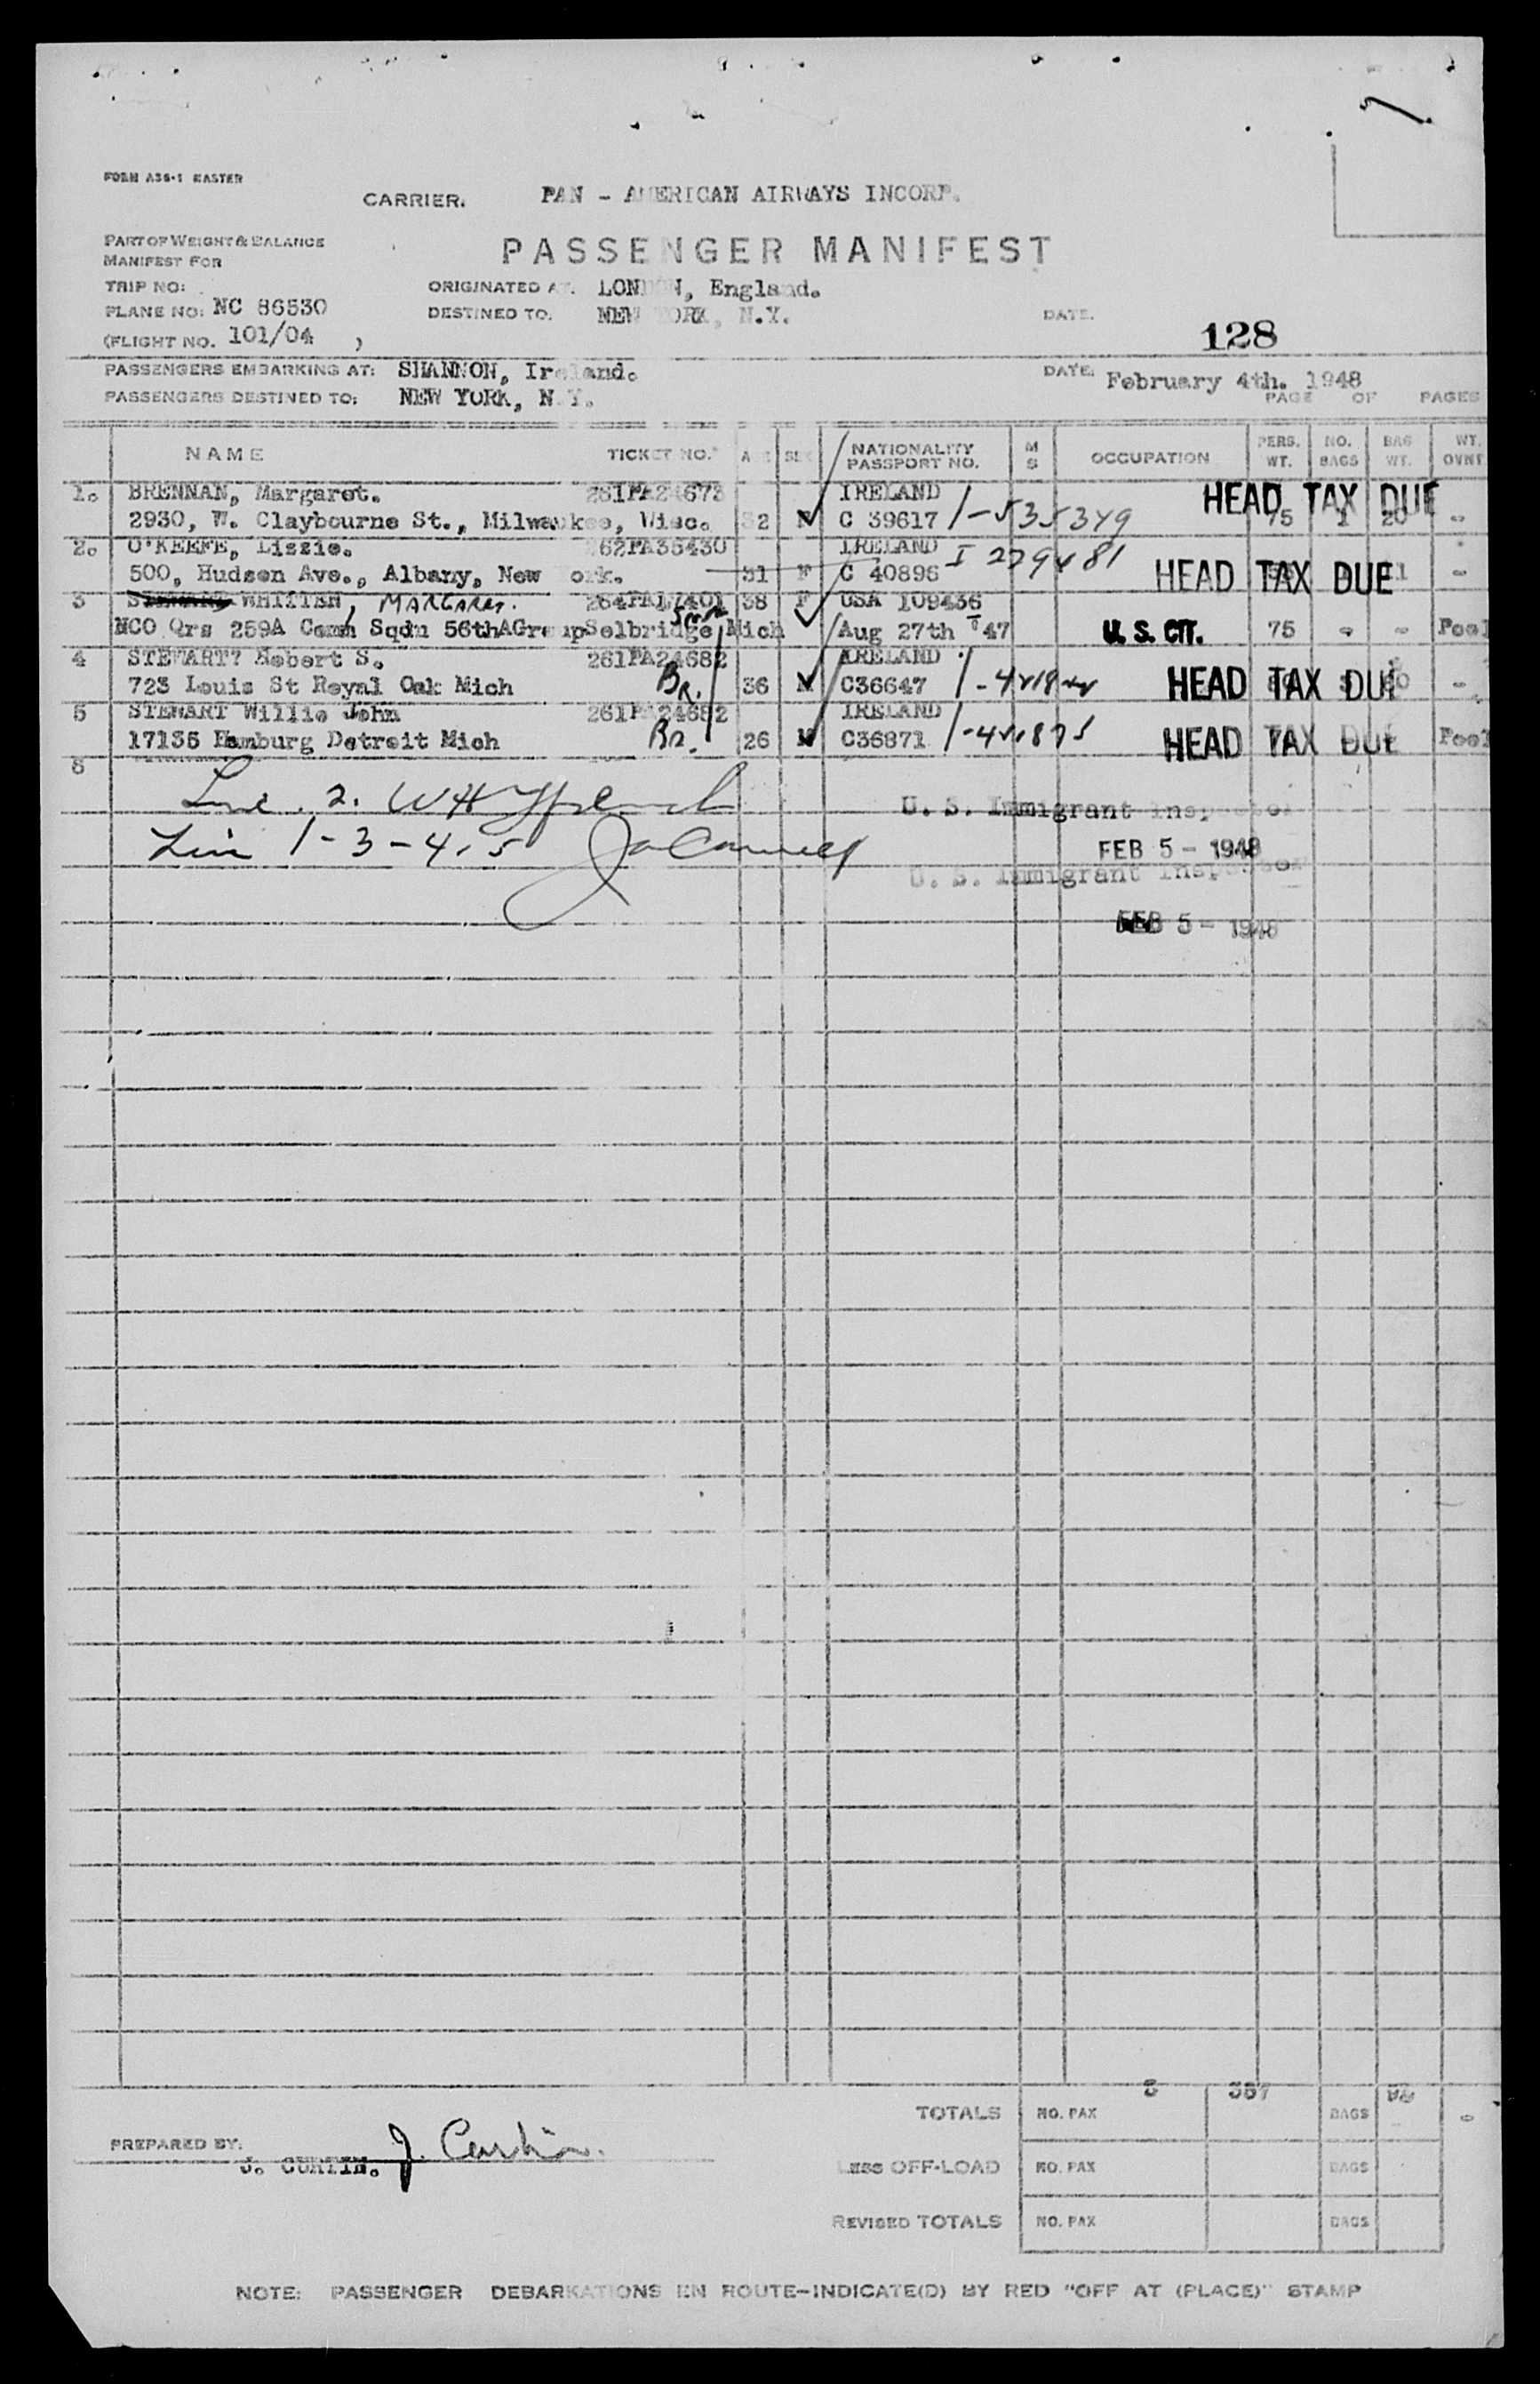 FORM A36-1 EASTER
CARRIER. PAN - AMERICAN AIRWAYS INCORP.
PART OF WEIGHT & BALANCE
MANIFEST FOR
PASSENGER MANIFEST
TRIP NO:
ORIGINATED AT. LONDON, England.
PLANE NO: NC 86530
DESTINED TO. NEW YORK, N.Y.
DATE.
128
(FLIGHT NO. 101/04 )
PASSENGERS EMBARKING AT: SHANNON, Ireland.
DATE: February 4th. 1948
PASSENGERS DESTINED TO: NEW YORK, N.Y.
PAGE OF PAGES
NAME TICKET NO. AGE SEX NATIONALITY PASSPORT NO. M S OCCUPATION PERS. WT. NO. BAGS BAG WT. WT. OVNT
1. BRENNAN, Margaret. 261PA24673 IRELAND HEAD TAX DUE
2930, W. Claybourne St., Milwaukee, Wisc. 32 C 39617 1-535349 75 1 20 -
2. O'KEEFE, Lizzie. 262PA35430 IRELAND I 229481
500, Hudson Ave., Albany, New York. 31 F C 40896 HEAD TAX DUE -
3 STEWART WHITTEN, MARGARET. 264PA17401 38 F USA 109436
NCO Qrs 259A Comm Sqdn 56thAGroupSelbridge Mich Aug 27th '47 U.S. CIT. 75 - - Pool
4 STEWART? Robert S. 261PA24682 IRELAND
723 Louis St Royal Oak Mich BR. 36 M C36647 HEAD TAX DUE -
5 STEWART Willie John 261PA24682 IRELAND
17135 Hamburg Detroit Mich BR. 26 M C36871 HEAD TAX DUE Pool
6
Line. 2. WH
U. S. Immigrant Inspector
Line 1-3-4-5
FEB 5 - 1948
U. S. Immigrant Inspector
FEB 5 - 1948
5 387
TOTALS NO. PAX BAGS -
PREPARED BY:
J. CURTIN. J. Curtin.
LESS OFF-LOAD NO. PAX BAGS
REVISED TOTALS NO. PAX BAGS
NOTE: PASSENGER DEBARKATIONS EN ROUTE-INDICATE(D) BY RED "OFF AT (PLACE)" STAMP